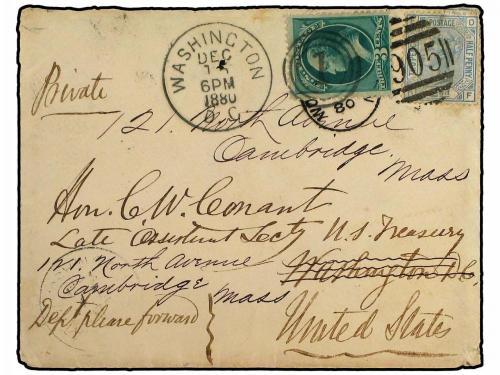 WASHINGTON
DEC
6PM
1880
D.C.
POSTAGE
HALFPENNY
D
F
905
80
Private
121. North Avenue
Cambridge
Mass
Hon. C. W. Conant
Late Assistant Secty U.S. Treasury
121 North Avenue
Washington D.C.
Cambridge Mass
Dept please forward
United States